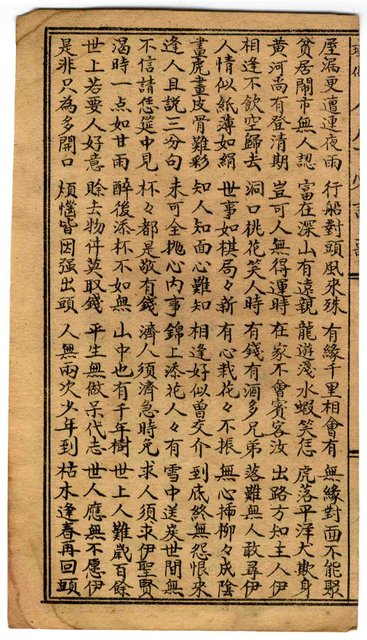 屋漏更遭連夜雨 行船對頭風來殊 有緣千里相會有 無緣對面不能聚
貧居鬧市無人認 富在深山有遠親 龍遊淺水蝦笑恁 虎落平洋犬欺身
黃河尚有登清期 豈可人無得運時 在家不會賓客汝 出路方知主人伊
相逢不飲空歸去 洞口桃花笑人時 有錢有酒多兄弟 落難無人敢尋伊
人情似紙薄如絹 世事如棋局々新 有心栽花々不振 無心插柳々成陰
畫虎畫皮骨難彩 知人知面心難知 相逢好似曾交介 到底終無怨恨來
逢人且說三分句 未可全拋心內事 錦上添花人々有 雪中送炭世間無
不信請恁筵中見 杯々都是敬有錢 濟人須濟急時兄 求人須求伊聖賢
渴時一点如甘雨 醉後添杯不如無 山中也有千年樹 世上人難歲百餘
世上若要人好意 賒去物件莫取錢 平生無做呆代志 世人應無不愿伊
是非只為多開口 煩惱皆因强出頭 人無兩次少年到 枯木逢春再回頭